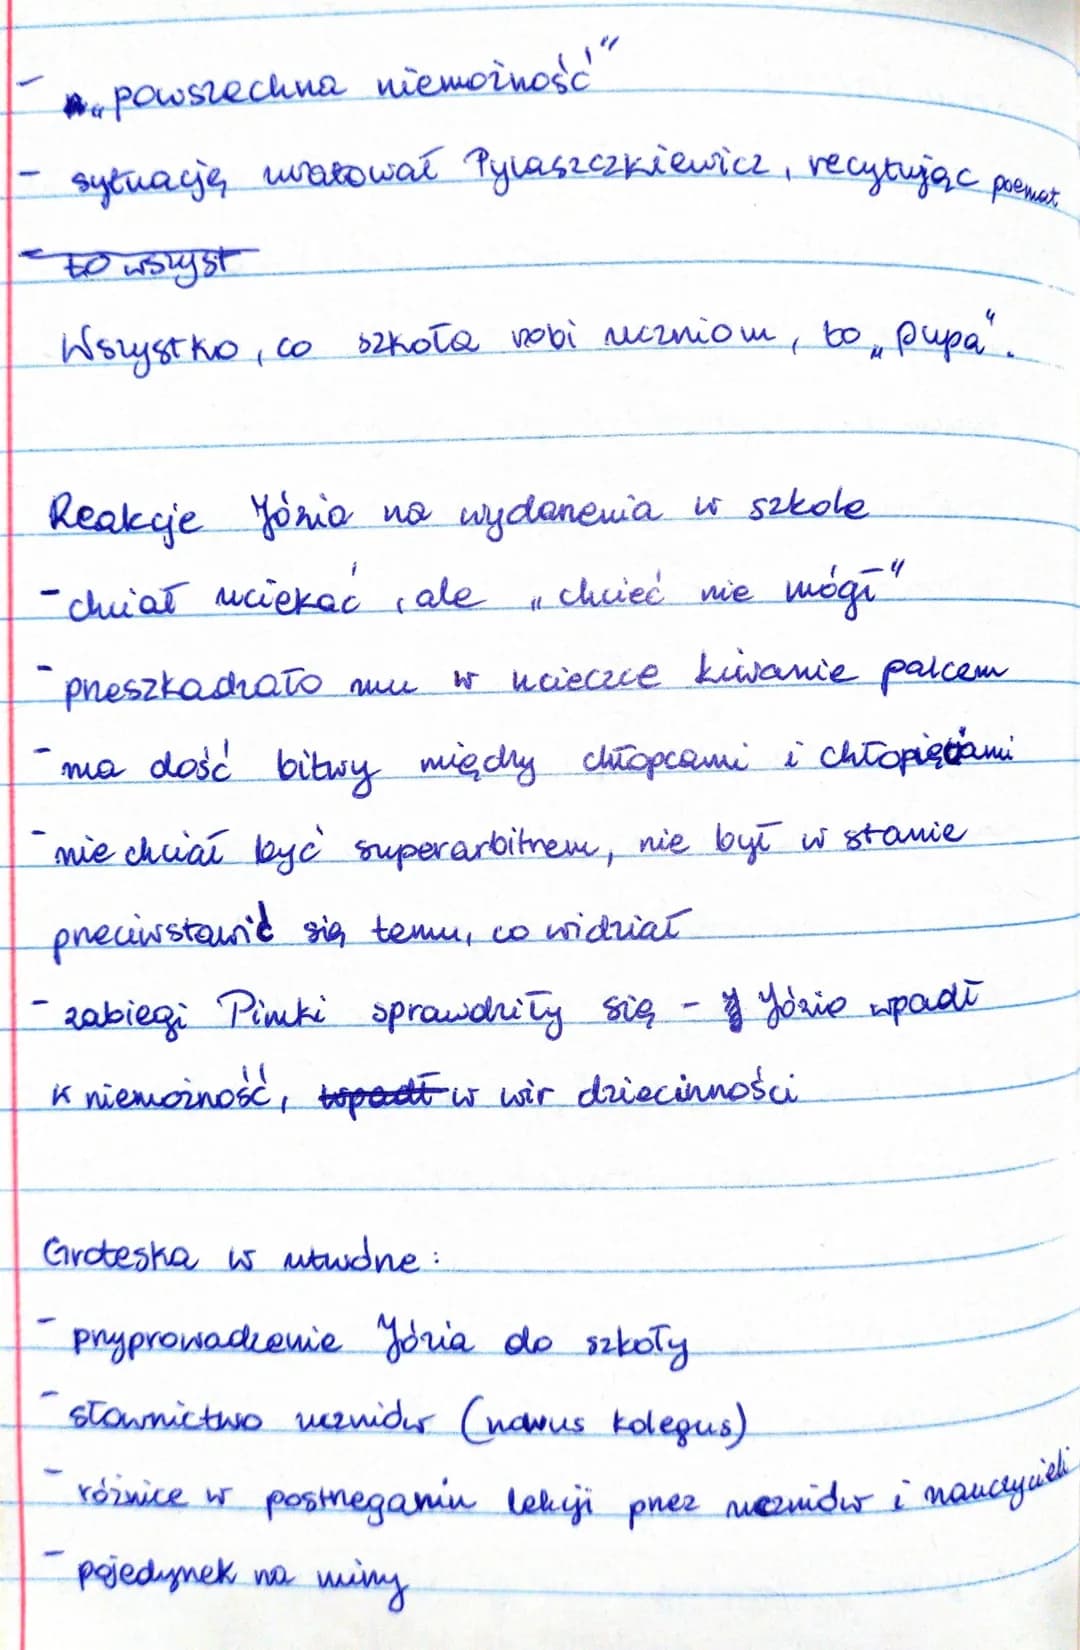 - „powszechna niemożność"
- sytuację uratował Pylaszczkiewicz, recytując poemat
- to wszyst
Wszystko, co szkoła robi uczniom, to „pupa".
Reakcje Józia na wydarzenia w szkole
- chciał uciekać, ale „chcieć nie mógł"
- przeszkadzało mu w ucieczce kiwanie palcem
- ma dość bitwy między chłopcami i chłopiętami
- nie chciał być superarbitrem, nie był w stanie
przeciwstawić się temu, co widział
- zabiegi Pimki sprawdziły się - Józio wpadł
w niemożność, wpadł w wir dziecinności
Groteska w utworze:
- przyprowadzenie Józia do szkoły
- słownictwo uczniów (nowus kolegus)
- różnice w postrzeganiu lekcji przez uczniów i nauczycieli
- pojedynek na miny